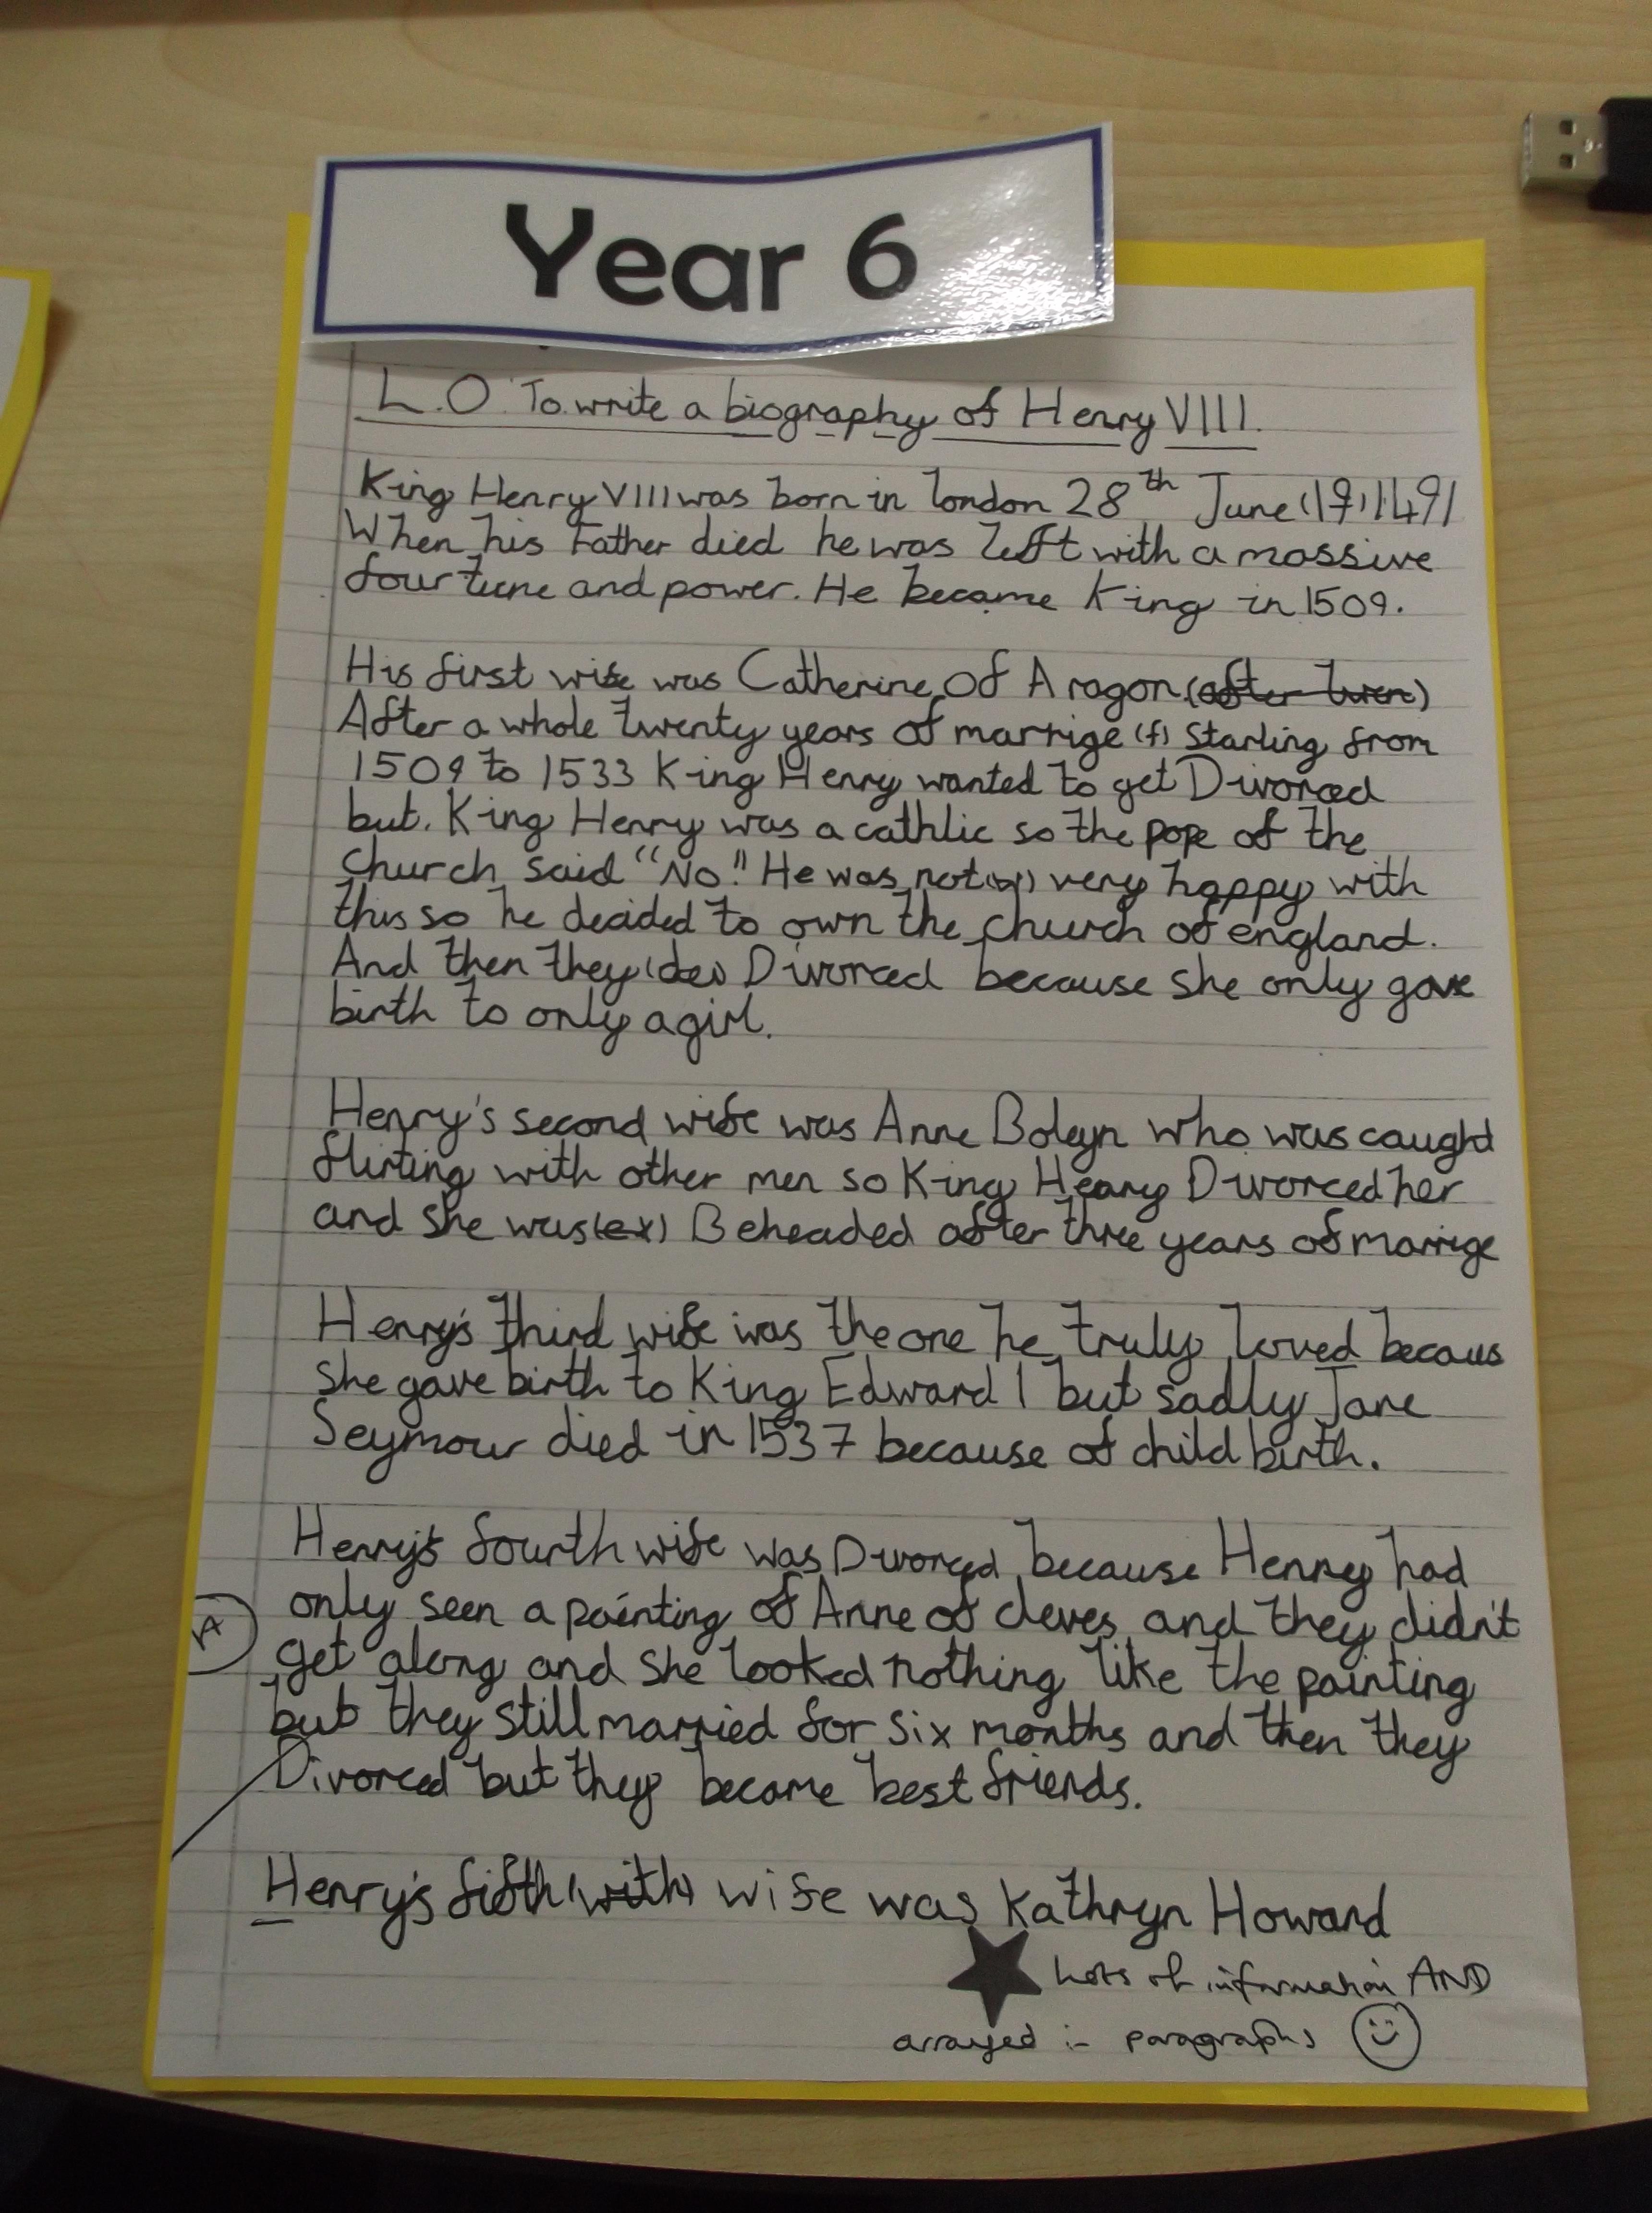 Year 6
L.O To write a biography of Henry VIII.
King Henry VIII was born in london 28th June (19) 1491
When his Father died he was left with a massive
fourtune and power. He became King in 1509.
His first wife was Catherine Of Aragon (after twen)
After a whole twenty years of marrige (f) Starting from
1509 to 1533 King Henry wanted to get Divorced
but. King Henry was a cathlic so the pope of the
church said "No." He was not very happy with
this so he decided to own the church of england.
And then they (de) Divorced because she only gave
birth to only a girl.
Henry's second wife was Anne Boleyn who was caught
flirting with other men so King Henry Divorced her
and she was (ex) Beheaded after three years of marrige
Henry's third wife was the one he truly loved becaus
she gave birth to King Edward I but sadly Jane
Seymour died in 1537 because of child birth.
Henry's fourth wife was Divorced because Henrey had
only seen a painting of Anne of cleves and they didn't
get along and she looked nothing like the painting
but they still married for six months and then they
Divorced but they became best friends.
A
Henry's fifth (with) wife was Kathryn Howard
Lots of information AND
arrayed in paragraphs